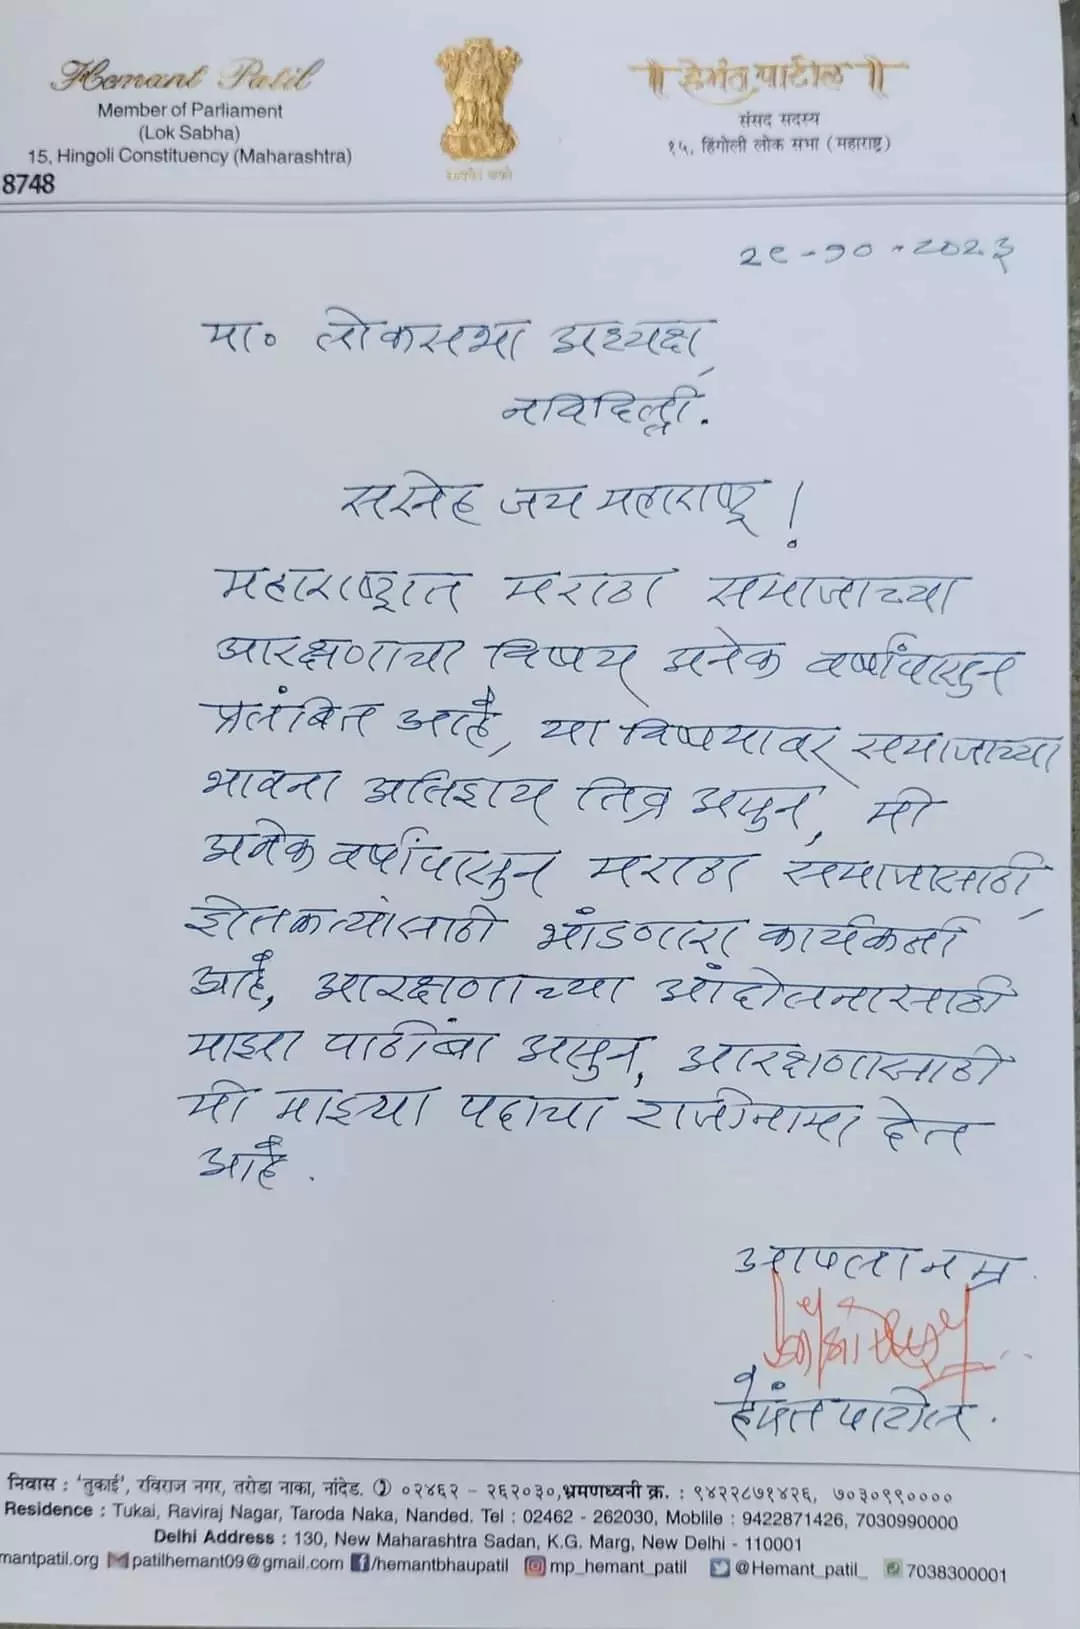 Hemant Patil
Member of Parliament
(Lok Sabha)
15, Hingoli Constituency (Maharashtra)
8748
सत्यमेव जयते
॥ हेमंत पाटील ॥
संसद सदस्य
१५, हिंगोली लोक सभा (महाराष्ट्र)
२९-१०-२०२३
मा० लोकसभा अध्यक्ष,
नविदिल्ली.
सस्नेह जय महाराष्ट्र !
महाराष्ट्रात मराठा समाजाच्या
आरक्षणाचा विषय अनेक वर्षांपासुन
प्रलंबित आहे, या विषयावर समाजाच्या
भावना अतिशय तिव्र असुन, मी
अनेक वर्षांपासुन मराठा समाजासाठी,
शेतकऱ्यांसाठी भांडणारा कार्यकर्ता
आहे, आरक्षणाच्या आंदोलनासाठी
माझा पाठींबा असुन, आरक्षणासाठी
मी माझ्या पदाचा राजीनामा देत
आहे.
आपला नम्र
हेमंत पाटील.
निवास : 'तुकाई', रविराज नगर, तरोडा नाका, नांदेड. ✆ ०२४६२ - २६२०३०,भ्रमणध्वनी क्र. : ९४२२८७१४२६, ७०३०९९००००
Residence : Tukai, Raviraj Nagar, Taroda Naka, Nanded. Tel : 02462 - 262030, Moblile : 9422871426, 7030990000
Delhi Address : 130, New Maharashtra Sadan, K.G. Marg, New Delhi - 110001
mantpatil.org patilhemant09@gmail.com /hemantbhaupatil mp_hemant_patil @Hemant_patil_ 7038300001